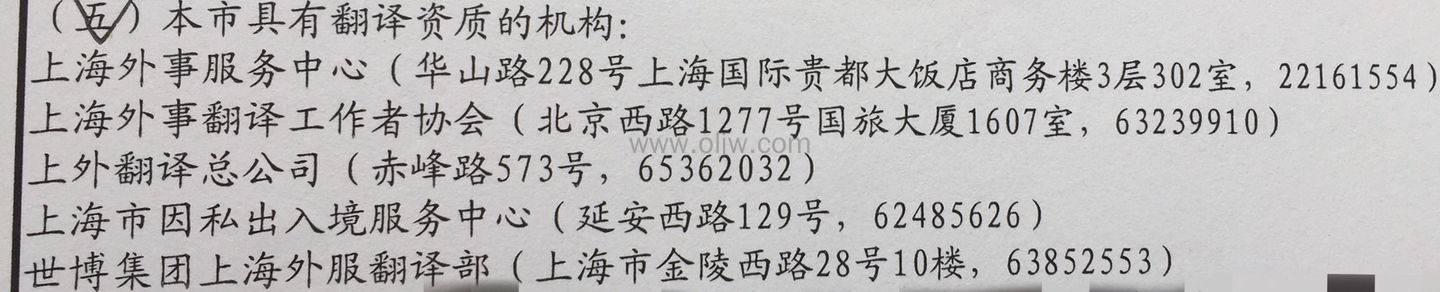 （五）本市具有翻译资质的机构：
上海外事服务中心（华山路228号上海国际贵都大饭店商务楼3层302室，22161554）
上海外事翻译工作者协会（北京西路1277号国旅大厦1607室，63239910）
www.oljw.com
上外翻译总公司（赤峰路573号，65362032）
上海市因私出入境服务中心（延安西路129号，62485626）
世博集团上海外服翻译部（上海市金陵西路28号10楼，63852553）